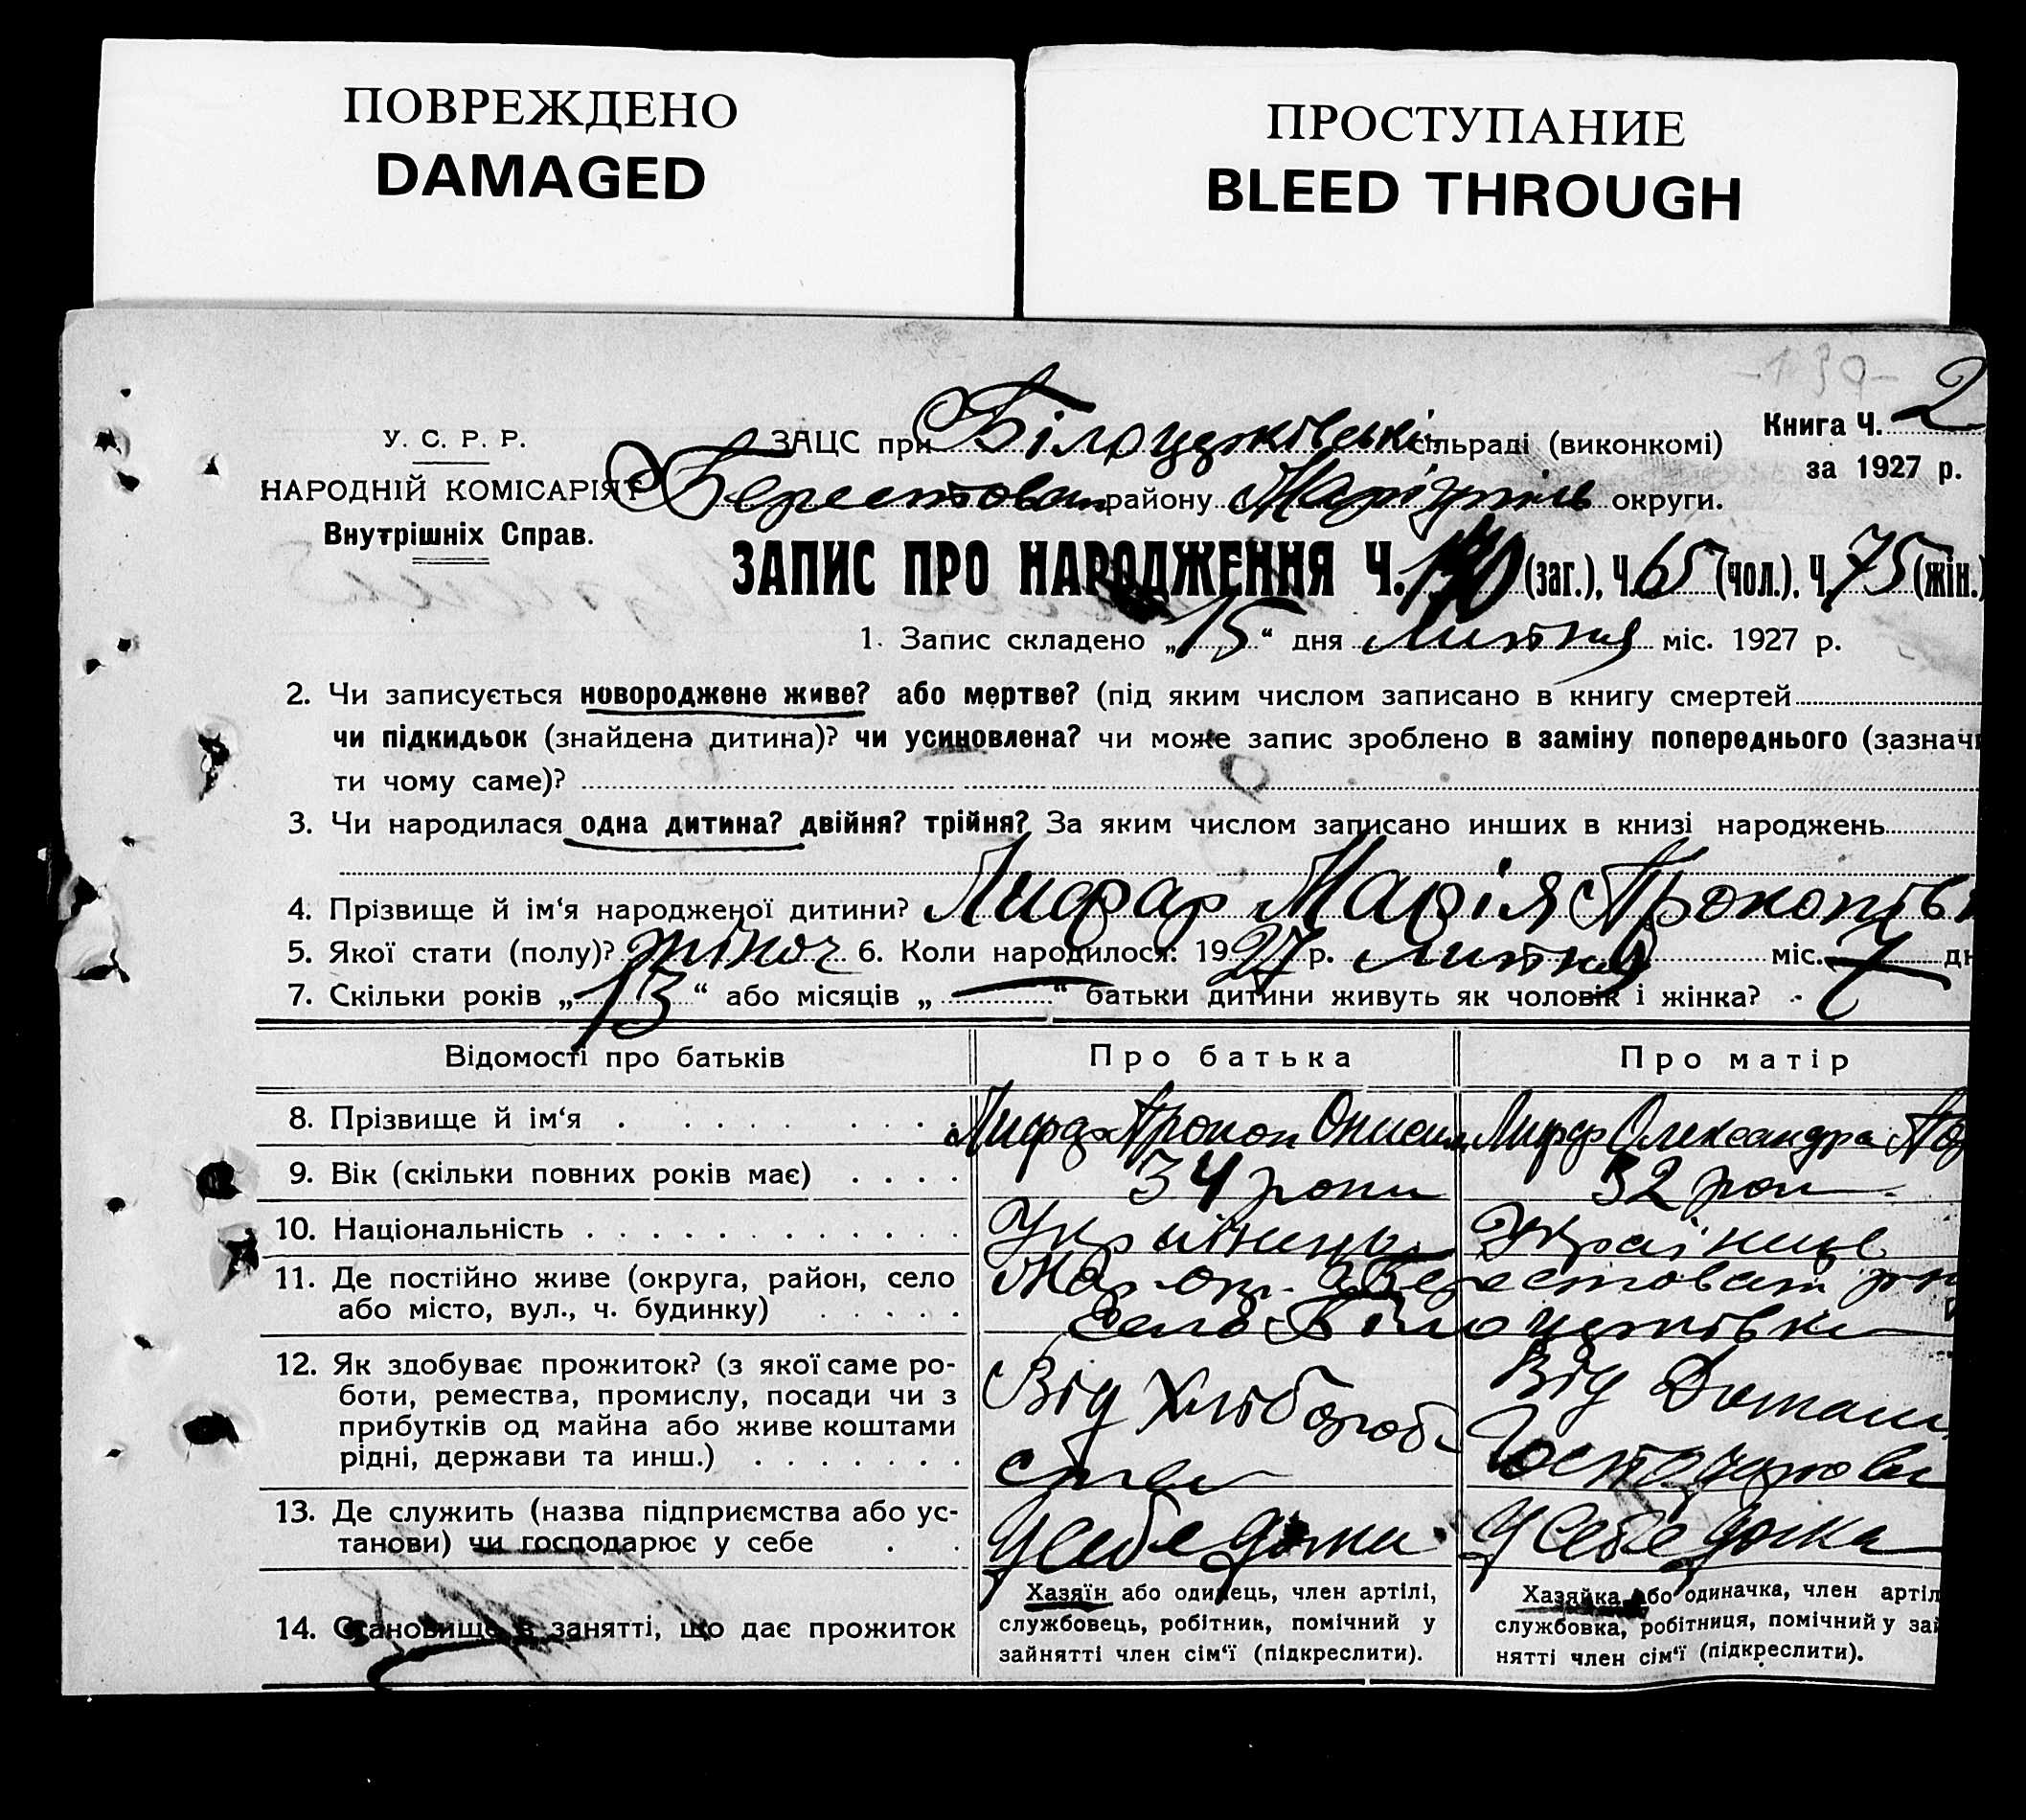 ПОВРЕЖДЕНО
DAMAGED
ПРОСТУПАНИЕ
BLEED THROUGH
Книга Ч. 2
за 1927 р.
У. С. Р. Р.
НАРОДНІЙ КОМІСАРІЯТ
Внутрішніх Справ.
ЗАЦС при Білоцерківські сільраді (виконкомі)
Берестован району Маріупіль округи.
ЗАПИС ПРО НАРОДЖЕННЯ Ч. 140 (заг.), Ч. 65 (чол.), Ч. 75 (жін.)
1. Запис складено „15“ дня Литня міс. 1927 р.
2. Чи записується новороджене живе? або мертве? (під яким числом записано в книгу смертей
чи підкидьок (знайдена дитина)? чи усиновлена? чи може запис зроблено в заміну попереднього (зазначи
ти чому саме)?
3. Чи народилася одна дитина? двійня? трійня? За яким числом записано инших в книзі народжень
4. Прізвище й ім‘я народженої дитини? Лифар Марія Прокопівн
5. Якої стати (полу)? жіноч 6. Коли народилося: 1927 р. Литня міс. 7 дн
7. Скільки років „13“ або місяців „—“ батьки дитини живуть як чоловік і жінка?
Відомості про батьків Про батька Про матір
8. Прізвище й ім‘я Лифар Прокоп Онисим Лифар Олександра
9. Вік (скільки повних років має) 34 роки 32 роки
10. Національність Українець Українець
11. Де постійно живе (округа, район, село Мар. окр. Берестоват рн
або місто, вул., ч. будинку) Село Білоцерківка
12. Як здобуває прожиток? (з якої саме ро-
боти, ремества, промислу, посади чи з
прибутків од майна або живе коштами
рідні, держави та инш.)
Від Хлібороб
ства
Від Домаш
Господарства
13. Де служить (назва підприємства або ус-
танови) чи господарює у себе
У себе дома У себе дома
14. Становище в занятті, що дає прожиток
Хазяїн або одинець, член артілі,
службовець, робітник, помічний у
зайнятті член сім‘ї (підкреслити).
Хазяйка або одиначка, член артіл
службовка, робітниця, помічний у зай
нятті член сім‘ї (підкреслити).